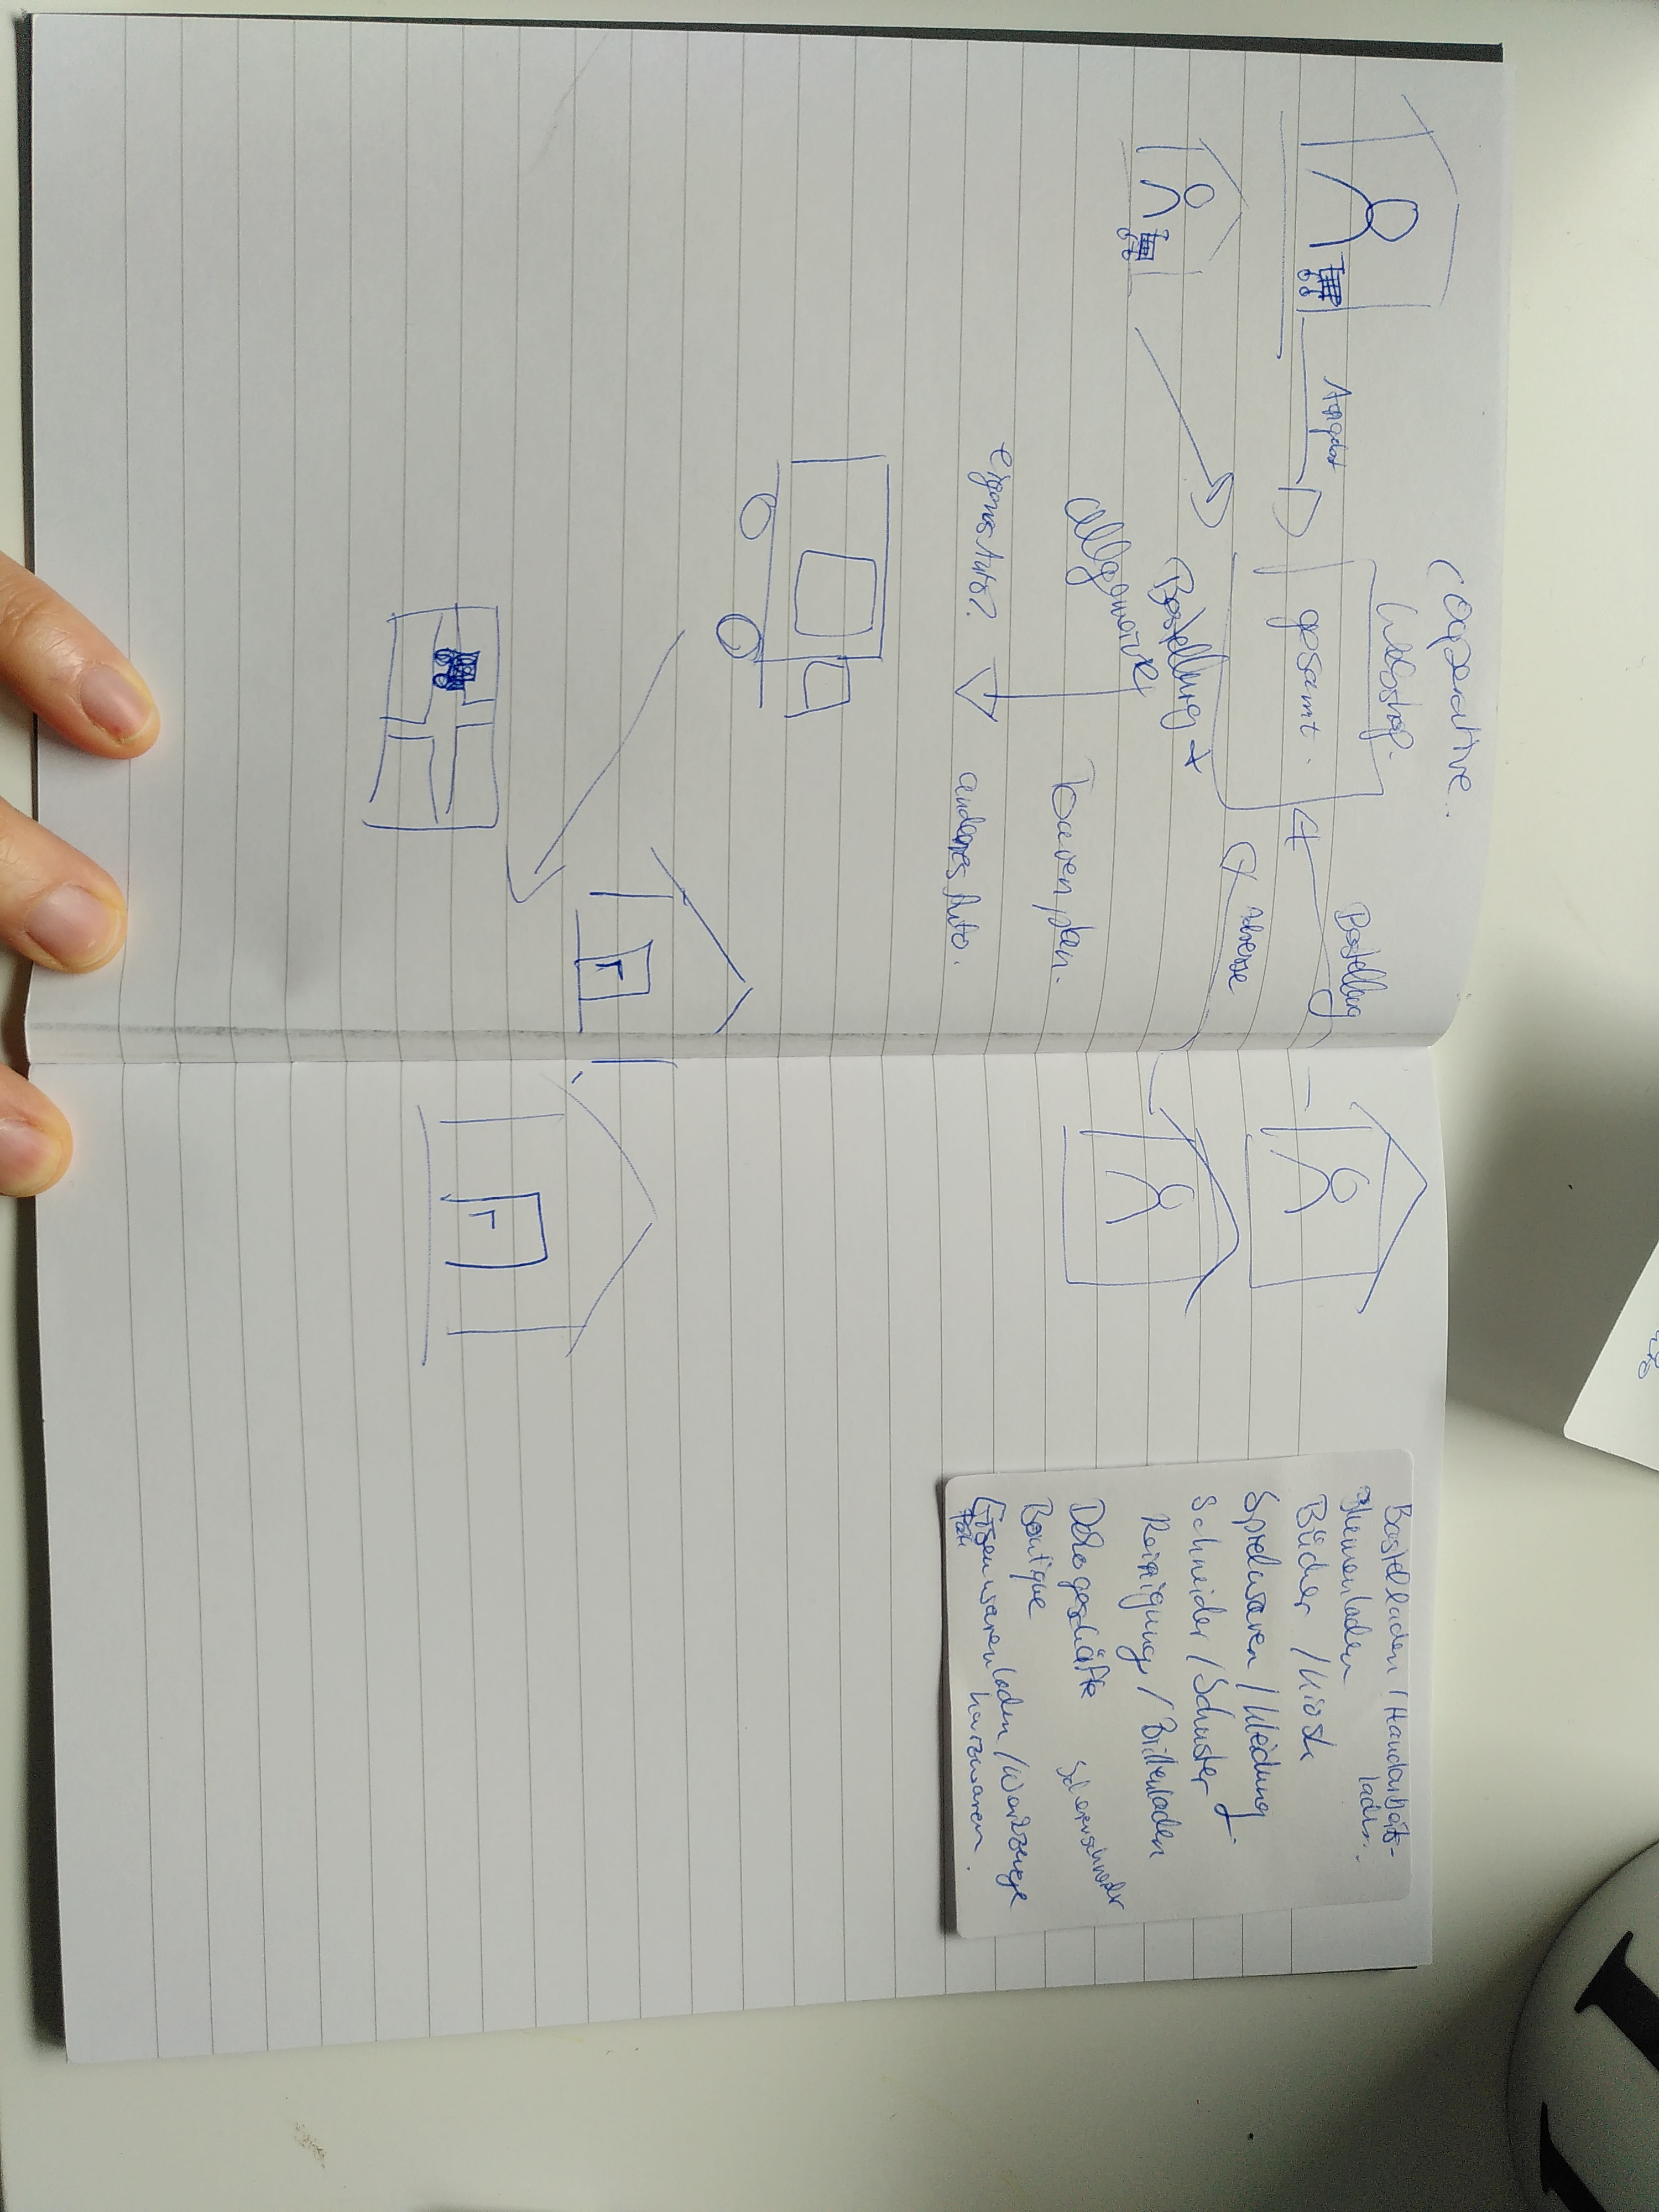 Cooperative.
Webshop.
Angebot
gesamt.
Bestellung
Adresse
Bestellung +
allgemeiner
Tourenplan.
eigenes Auto?
anderes Auto.
Bastelladen / Handarbeits-
laden.
Blumenladen
Bücher / Kiosk
Spielwaren / Kleidung
Schneider / Schuster
Reinigung / Brillenladen
Dekogeschäfte
Boutique
Eisenwarenladen / Werkzeuge
kurzwaren.